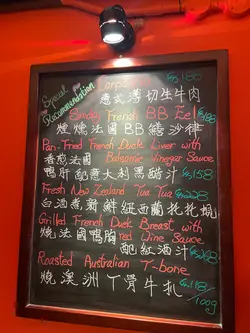 Special
Recommendation
意式薄切生牛肉
Smoky French BB Eel
煙燻法國BB鱔沙律
Pan-Fried French Duck Liver with
香煎法國 Balsamic Vinegar Sauce
鴨肝配意大利黑醋汁 $158
Fresh New Zealand Tua Tua $228
白酒煮新鮮紐西蘭扥扥蜆
Grilled French Duck Breast with
燒法國鴨胸 red Wine Sauce
配紅酒汁 $268
Roasted Australian T-bone
燒澳洲丁骨牛扒 $118/
100g